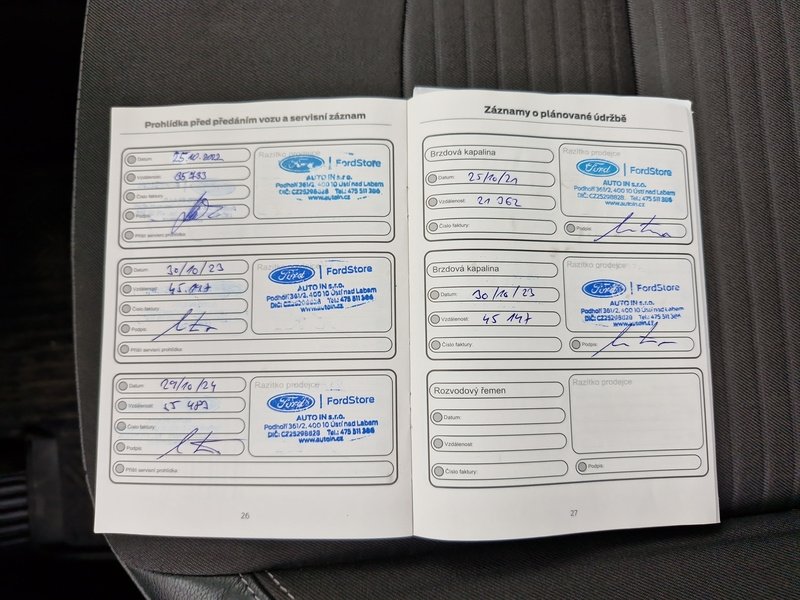 Prohlídka před předáním vozu a servisní záznam
Datum: 25.10.2022
Vzdálenost: 35733
Číslo faktury:
Podpis:
Příští servisní prohlídka:
Razítko prodejce
Ford FordStore
AUTO IN s.r.o.
Podhoří 361/2, 400 10 Ústí nad Labem
DIČ: CZ25298828 Tel.: 475 511 386
www.autoin.cz
Datum: 30/10/23
Vzdálenost: 45.147
Číslo faktury:
Podpis:
Příští servisní prohlídka:
Razítko prodejce
Ford FordStore
AUTO IN s.r.o.
Podhoří 361/2, 400 10 Ústí nad Labem
DIČ: CZ25298828 Tel.: 475 511 386
www.autoin.cz
Datum: 29/10/24
Vzdálenost: 55 489
Číslo faktury:
Podpis:
Příští servisní prohlídka:
Razítko prodejce
Ford FordStore
AUTO IN s.r.o.
Podhoří 361/2, 400 10 Ústí nad Labem
DIČ: CZ25298828 Tel.: 475 511 386
www.autoin.cz
26
Záznamy o plánované údržbě
Brzdová kapalina
Datum: 25/10/21
Vzdálenost: 21 362
Číslo faktury:
Razítko prodejce
Ford FordStore
AUTO IN s.r.o.
Podhoří 361/2, 400 10 Ústí nad Labem
DIČ: CZ25298828 Tel.: 475 511 386
www.autoin.cz
Podpis:
Brzdová kapalina
Datum: 30/10/23
Vzdálenost: 45 147
Číslo faktury:
Razítko prodejce
Ford FordStore
AUTO IN s.r.o.
Podhoří 361/2, 400 10 Ústí nad Labem
DIČ: CZ25298828 Tel.: 475 511 386
www.autoin.cz
Podpis:
Rozvodový řemen
Datum:
Vzdálenost:
Číslo faktury:
Razítko prodejce
Podpis:
27